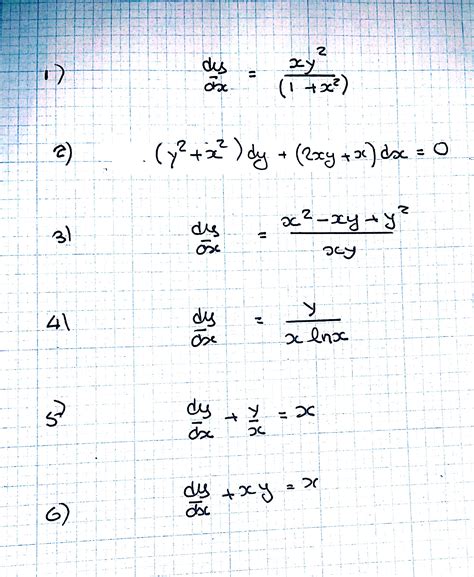 1) dy/dx = xy²/(1+x²)
2) (y²+x²)dy + (2xy+x)dx = 0
3) dy/dx = x²-xy+y²/xy
4) dy/dx = y/x lnx
5) dy/dx + y/x = x
6) dy/dx + xy = x